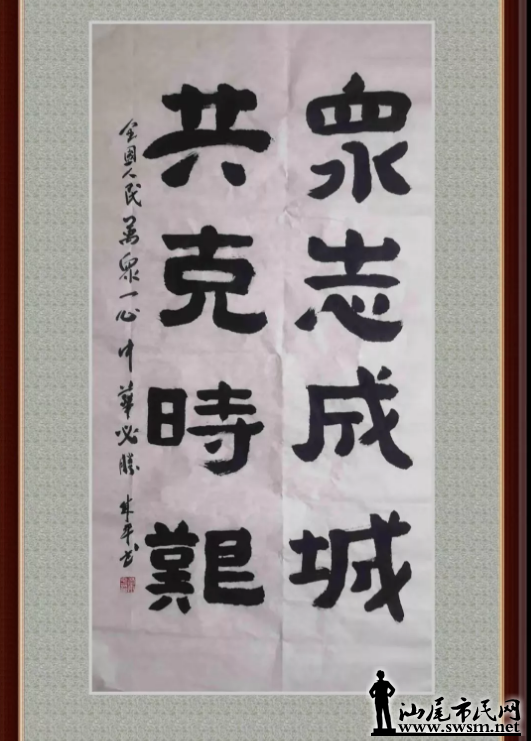 眾志成城
共克時艱
全國人民萬眾一心中華必勝 平書
汕尾市民网
www.swsm.net